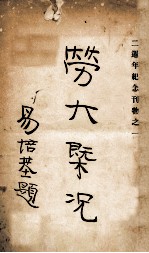 二週年紀念刊物之一
勞大槩況
易培基題